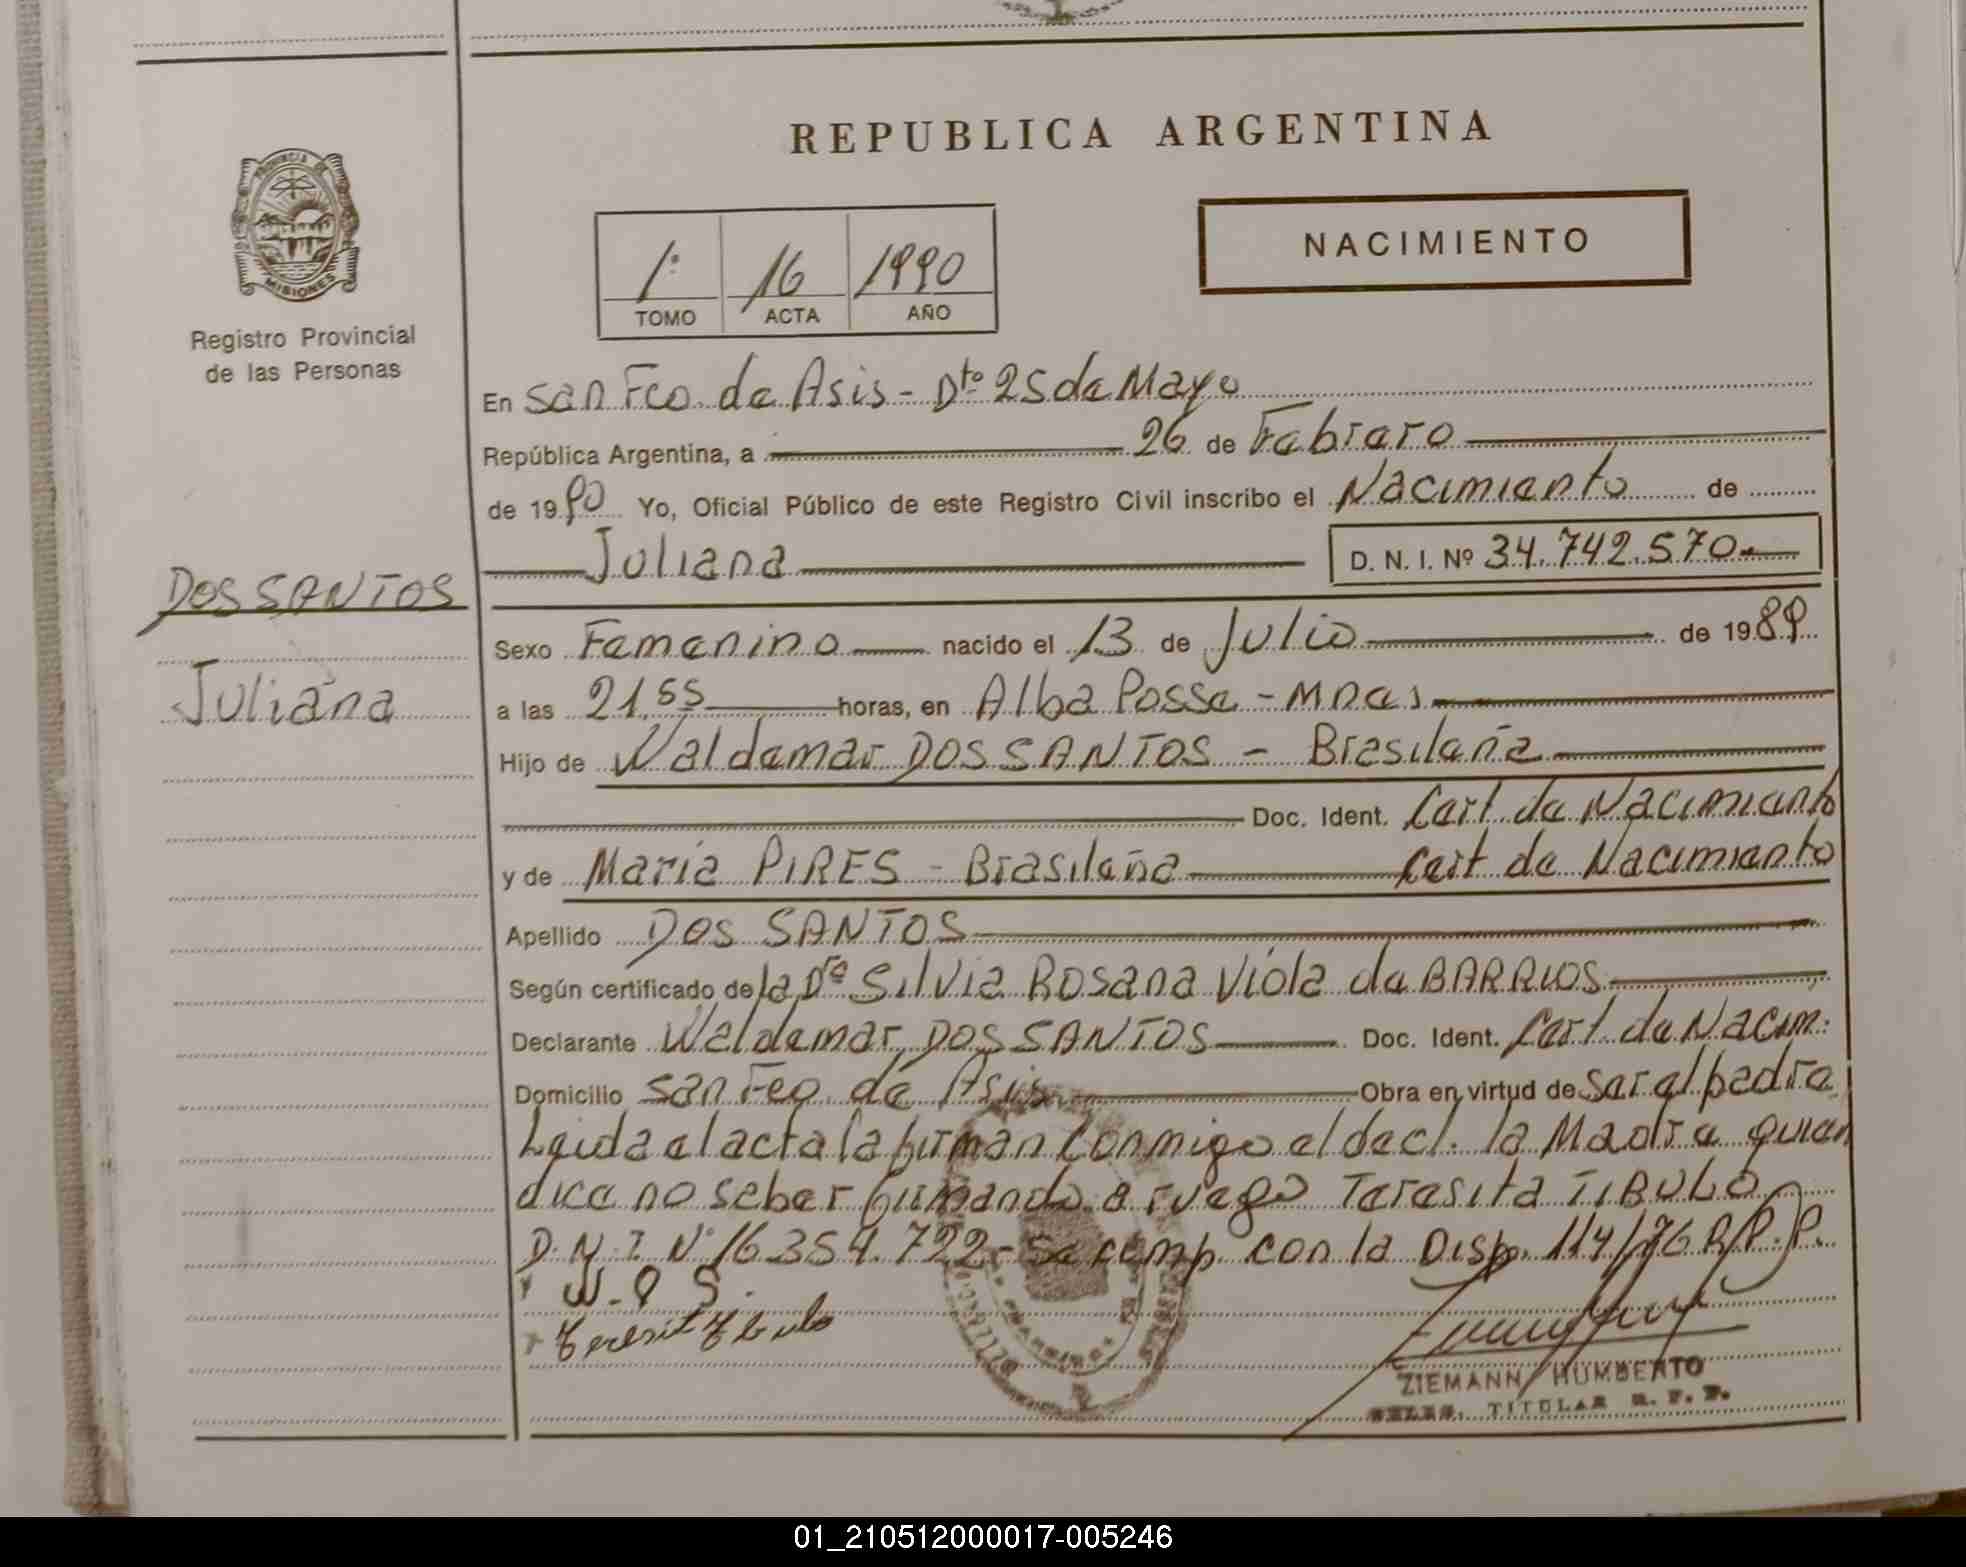 REPUBLICA ARGENTINA
PROVINCIA DE
MISIONES
Registro Provincial
de las Personas
NACIMIENTO
1º 16 1990
TOMO ACTA AÑO
En San Fco. de Asis - Dto 25 de Mayo
República Argentina, a 26 de Febrero
de 1990 Yo, Oficial Público de este Registro Civil inscribo el Nacimiento de
Juliana D. N. I. Nº 34.742.570.-
DOS SANTOS
Juliana
Sexo Femenino nacido el 13 de Julio de 1989
a las 21,55 horas, en Alba Posse - Mnes
Hijo de Waldemar DOS SANTOS - Brasileña
Doc. Ident. Cert. de Nacimiento
y de Maria PIRES - Brasileña Cert de Nacimiento
Apellido DOS SANTOS
Según certificado de la Dra Silvia Rosana Viola de BARRIOS
Declarante Waldemar DOS SANTOS Doc. Ident. Cert. de Nacim.
Domicilio San Fco. de Asis Obra en virtud de ser el padre
Leida el acta la firman conmigo el decl. la Madre quien
dice no saber firmando a ruego Teresita TIBULO
D.N.I. Nº 16.354.722 - Se comp. con la Disp. 114/76 R.P.P.
W. D S.
Teresit Tibulo
ZIEMANN HUMBERTO
TITULAR R. P. P.
01_210512000017-005246